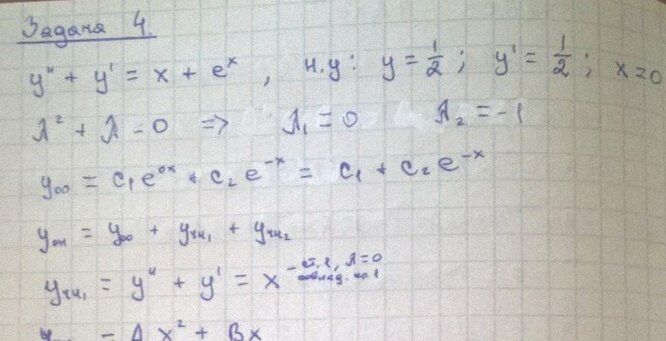 Задача 4.
y'' + y' = x + eˣ, н.у: y = 1/2; y' = 1/2; x = 0
λ² + λ = 0 => λ₁ = 0 λ₂ = -1
y₀₀ = c₁e⁰ˣ + c₂e⁻ˣ = c₁ + c₂e⁻ˣ
yₒₙ = y₀₀ + yчн₁ + yчн₂
yчн₁ = y'' + y' = x - ст. 1, λ=0
= Ax² + Bx